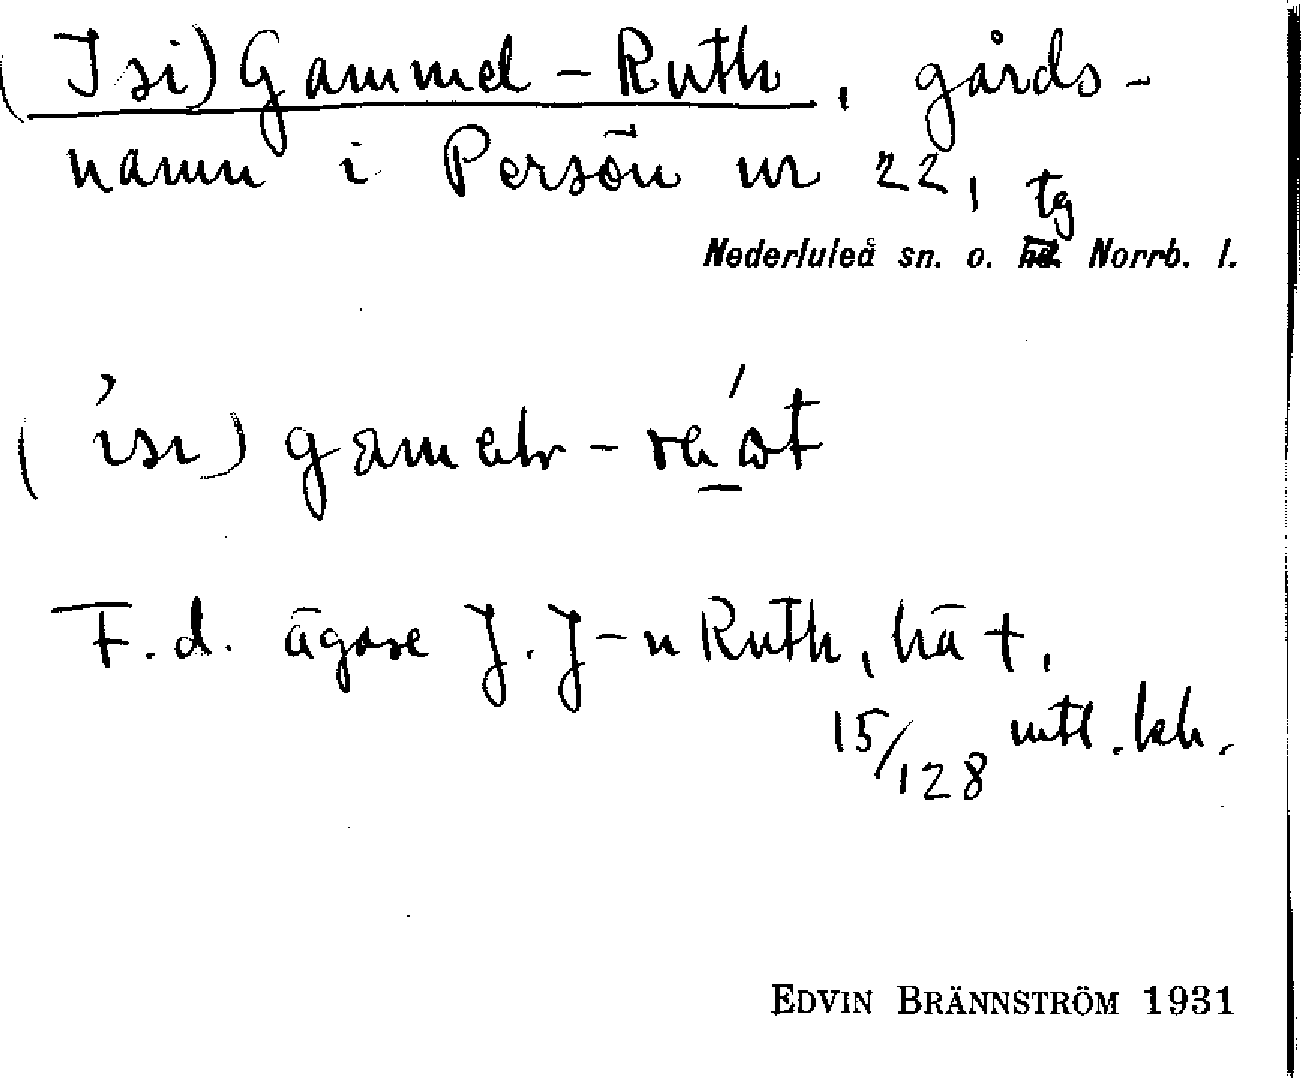 (Isi) Gammel-Ruth, gårds-
namn i Persön nr 22, tg
Nederluleå sn. o. Norrb. l.
(ísı) gamelr-
F.d. ägare J. J-n Ruth,
15/128 mtl.
EDVIN BRÄNNSTRÖM 1931